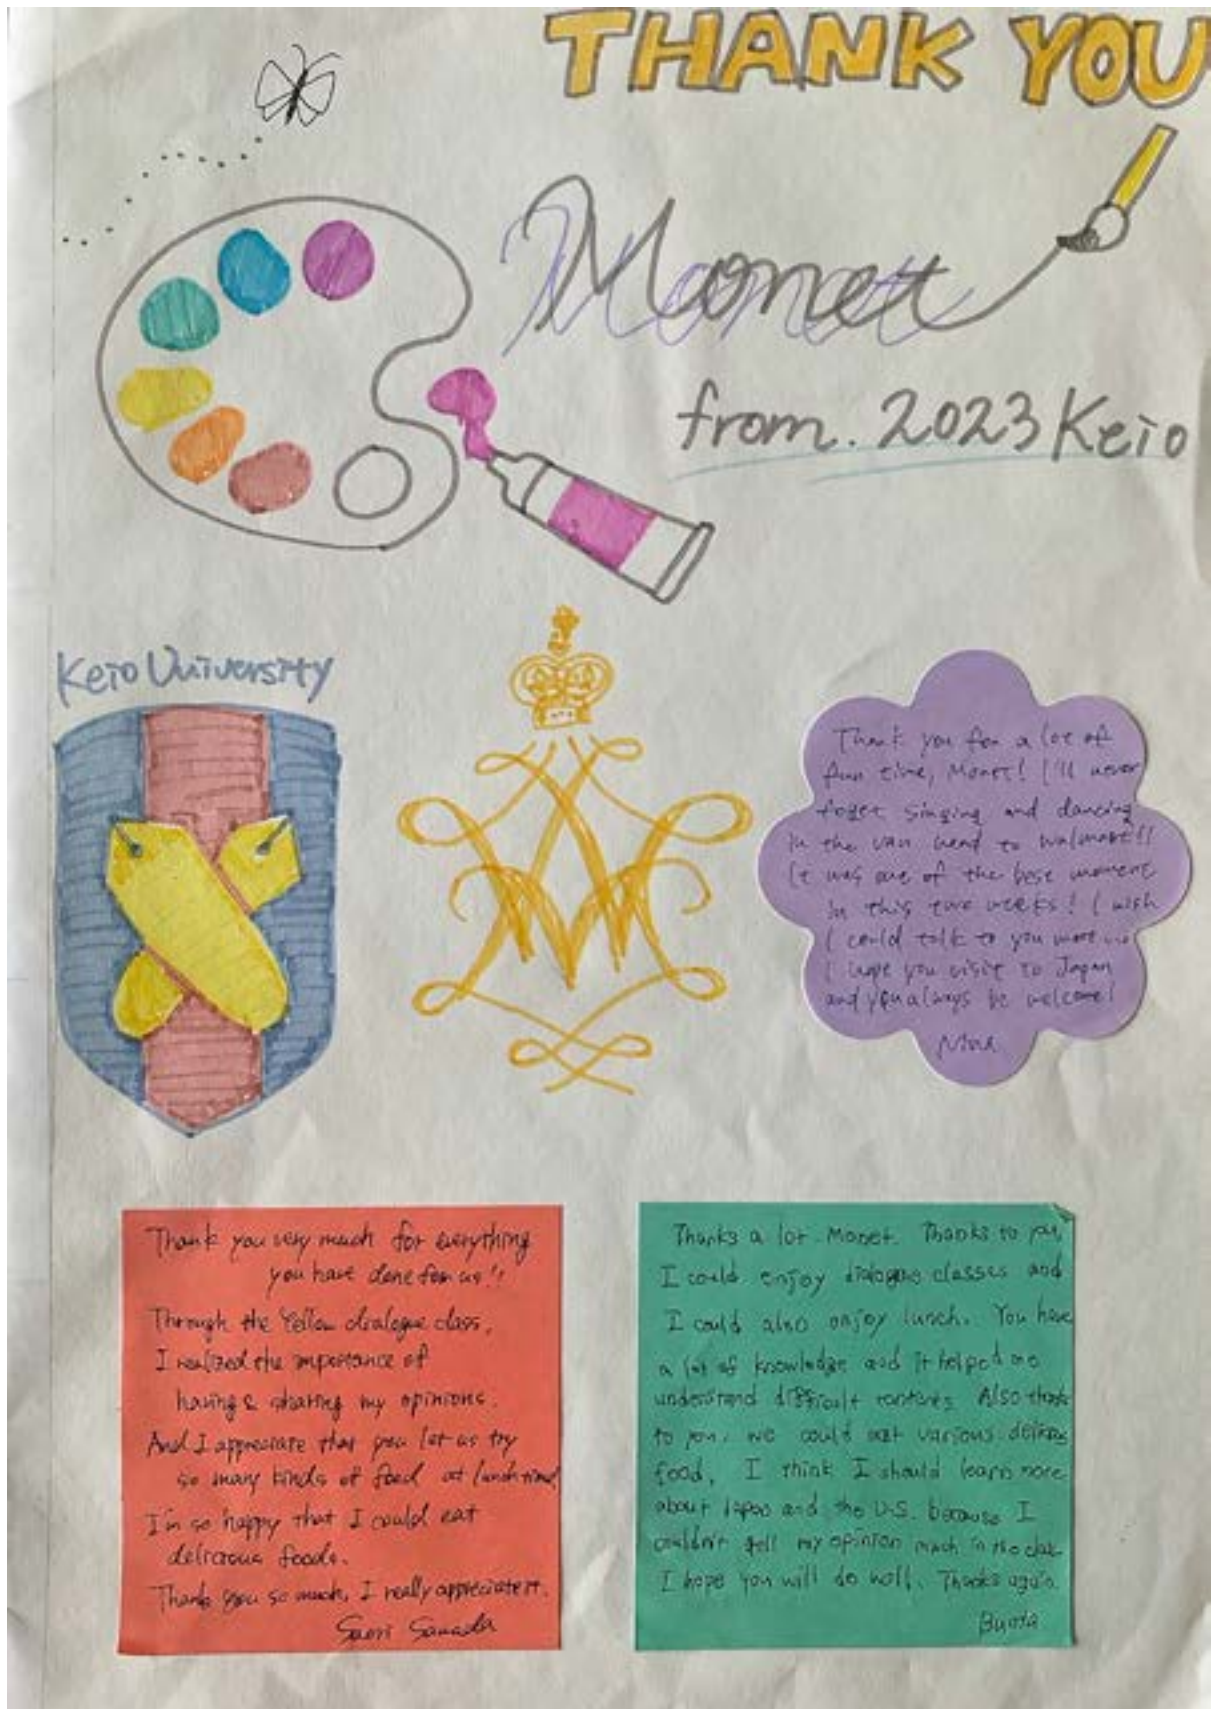 THANK YOU
Monet
from. 2023 Keio
Keio University
Thank you for a lot of
fun time, Monet! I'll never
foget singing and dancing
in the van head to Walmart!!
It was one of the best moment
in this two weeks! I wish
I could talk to you more
I hope you visit to Japan
and you always be welcome!
Thank you very much for everything
you have done for us!!
Through the Yellow dialogue class,
I realized the importance of
having & sharing my opinions.
And I appreciate that you let us try
so many kinds of food at lunch time!
I'm so happy that I could eat
delicious foods.
Thank you so much, I really appreciate it.
Saori Sawada
Thanks a lot Monet. Thanks to you,
I could enjoy dialogue classes and
I could also enjoy lunch. You have
a lot of knowledge and it helped me
understand difficult contents. Also thanks
to you, we could eat various delicious
food. I think I should learn more
about Japan and the U.S. because I
couldn't tell my opinion much in the class.
I hope you will do well. Thanks again.
Bunta